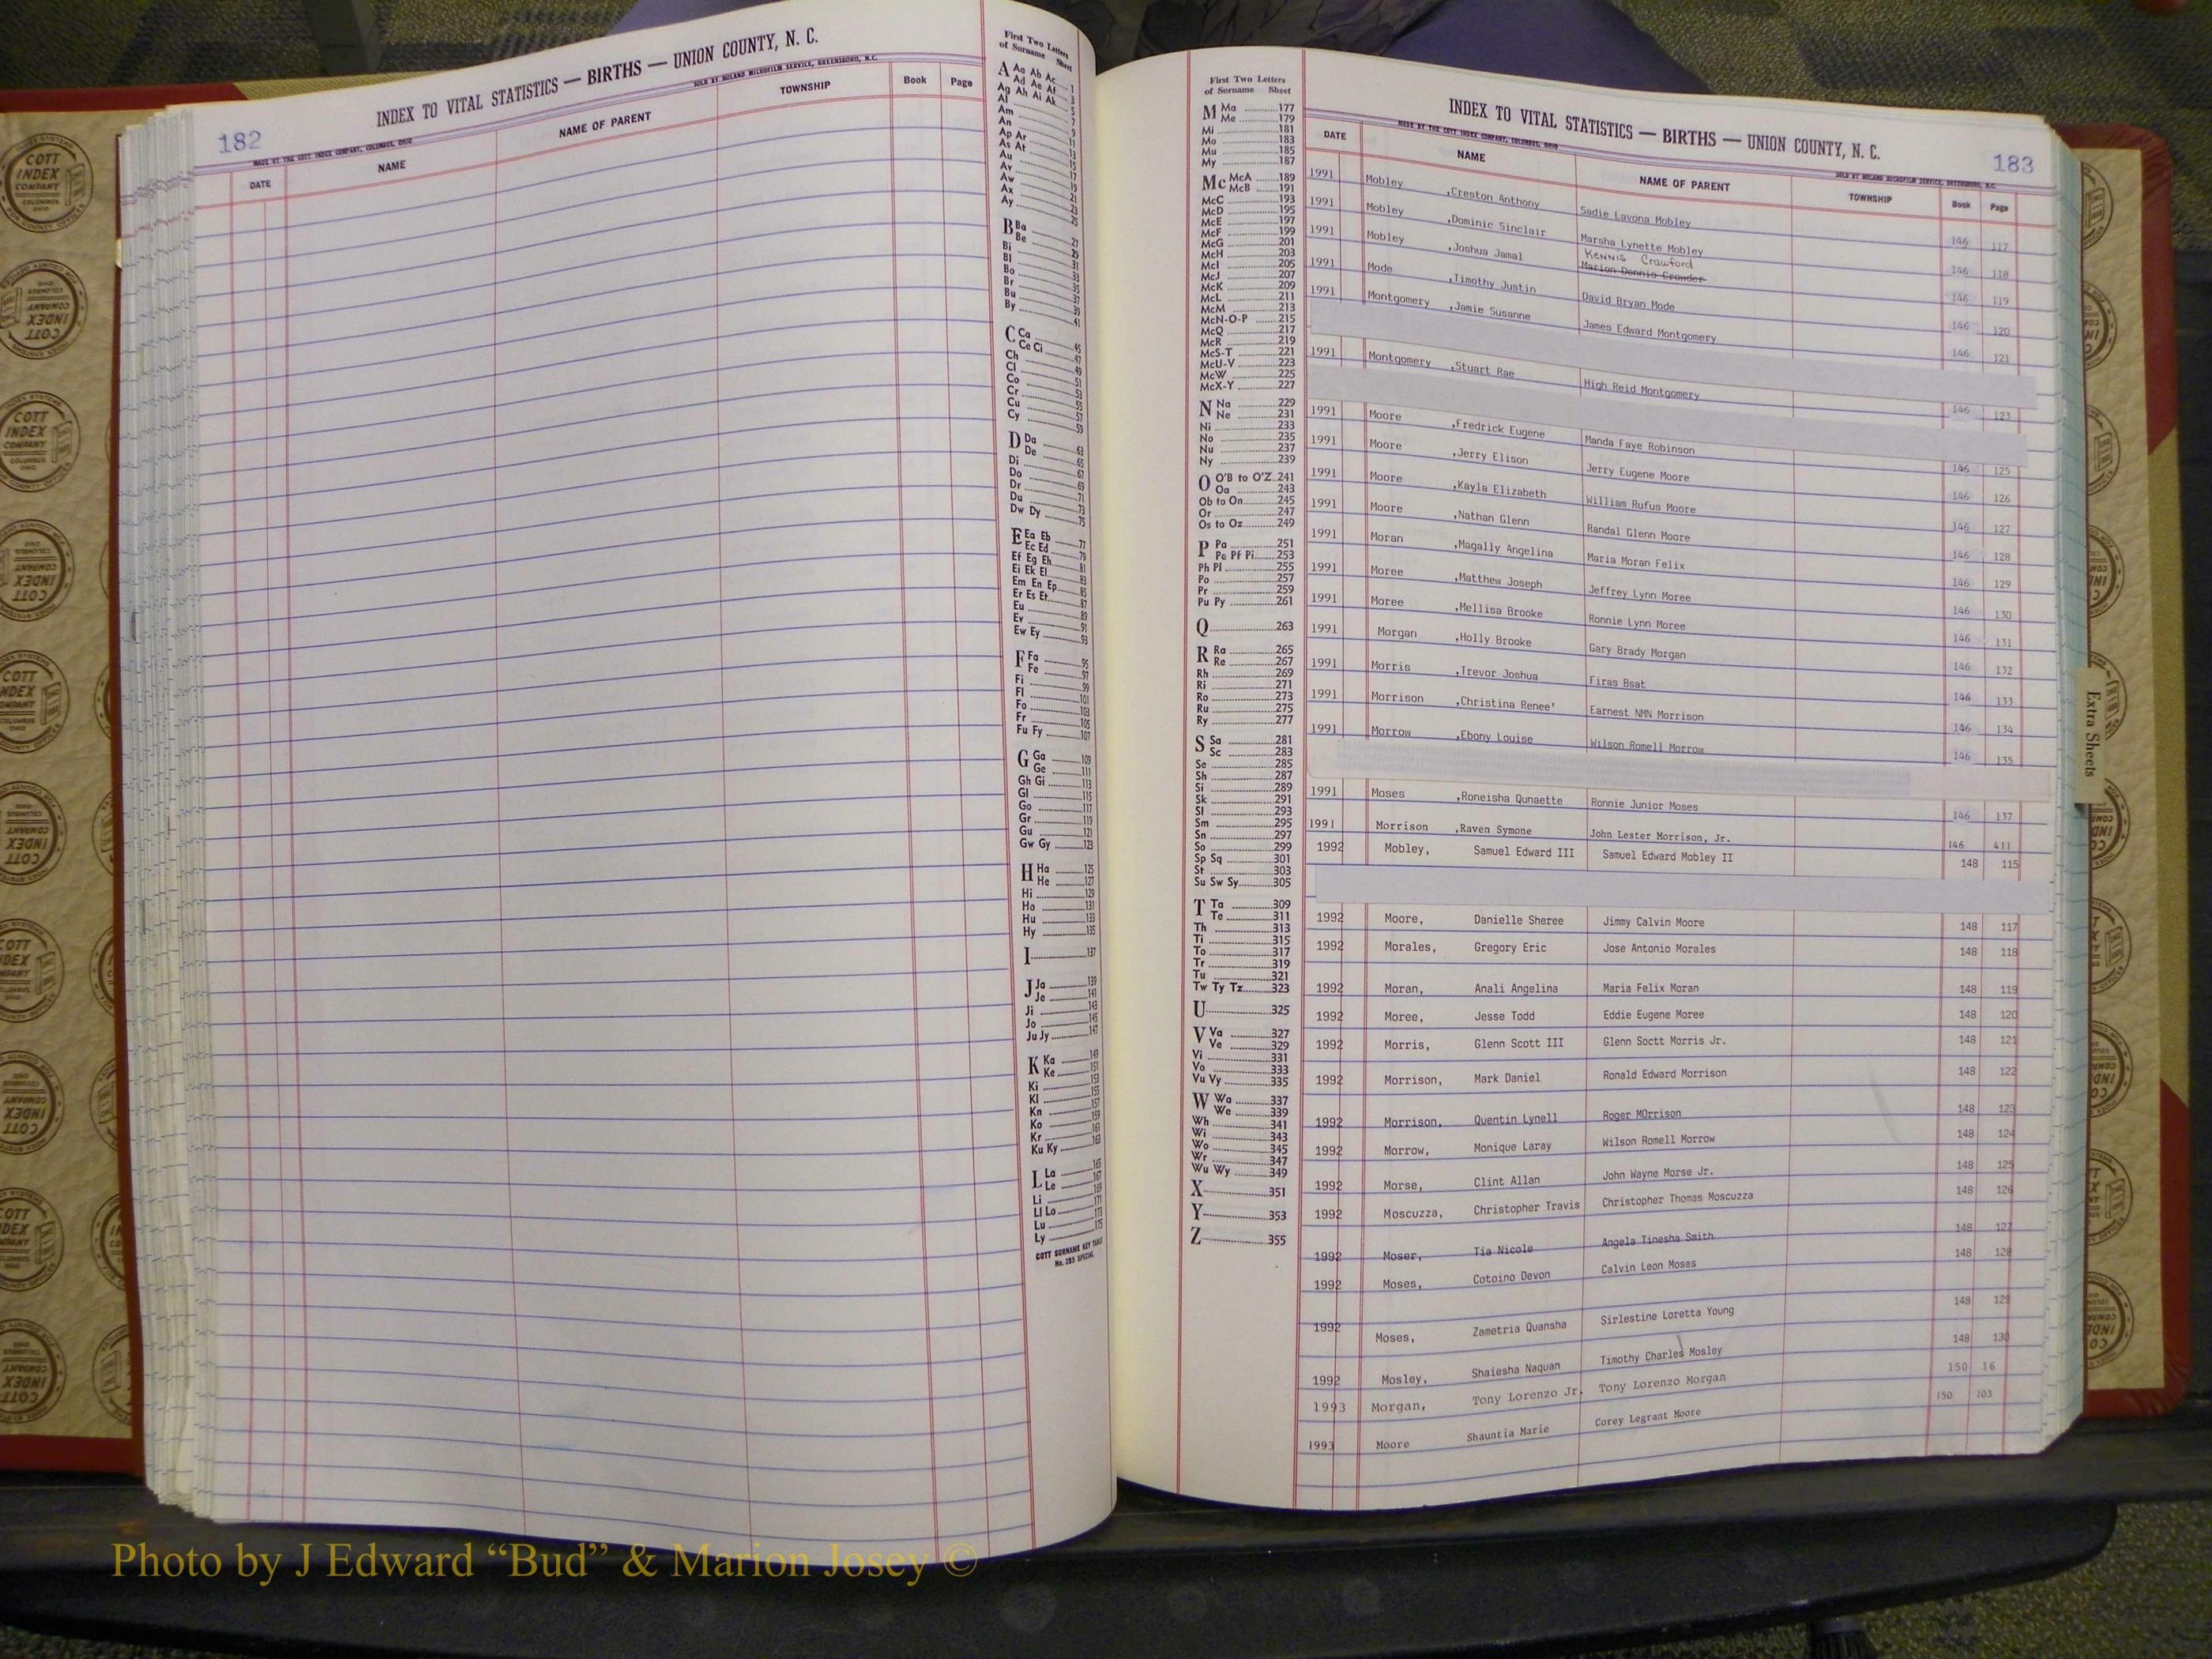 182
INDEX TO VITAL STATISTICS — BIRTHS — UNION COUNTY, N. C.
MADE BY THE COTT INDEX COMPANY, COLUMBUS, OHIO
SOLD BY NOLAND MICROFILM SERVICE, GREENSBORO, N.C.
DATE NAME NAME OF PARENT TOWNSHIP Book Page
First Two Letters
of Surname Sheet
A Aa Ab Ac 1
Ad Ae Af 3
Ag Ah Ai Ak 5
Al 7
Am 9
An 11
Ap Ar 13
As At 15
Au 17
Av 19
Aw 21
Ax 23
Ay 25
B Ba 27
Be 29
Bi 31
Bl 33
Bo 35
Br 37
Bu 39
By 41
C Ca 45
Ce Ci 47
Ch 49
Cl 51
Co 53
Cr 55
Cu 57
Cy 59
D Da 63
De 65
Di 67
Do 69
Dr 71
Du 73
Dw Dy 75
E Ea Eb 77
Ec Ed 79
Ef Eg Eh 81
Ei Ek El 83
Em En Ep 85
Er Es Et 87
Eu 89
Ev 91
Ew Ey 93
F Fa 95
Fe 97
Fi 99
Fl 101
Fo 103
Fr 105
Fu Fy 107
G Ga 109
Ge 111
Gh Gi 113
Gl 115
Go 117
Gr 119
Gu 121
Gw Gy 123
H Ha 125
He 127
Hi 129
Ho 131
Hu 133
Hy 135
I 137
J Ja 139
Je 141
Ji 143
Jo 145
Ju Jy 147
K Ka 149
Ke 151
Ki 153
Kl 155
Kn 157
Ko 159
Kr 161
Ku Ky 163
L La 165
Le 167
Li 169
Ll Lo 171
Lu 173
Ly 175
COTT SURNAME KEY TABLE
No. 385 SPECIAL
First Two Letters
of Surname Sheet
M Ma 177
Me 179
Mi 181
Mo 183
Mu 185
My 187
Mc McA 189
McB 191
McC 193
McD 195
McE 197
McF 199
McG 201
McH 203
McI 205
McJ 207
McK 209
McL 211
McM 213
McN-O-P 215
McQ 217
McR 219
McS-T 221
McU-V 223
McW 225
McX-Y 227
N Na 229
Ne 231
Ni 233
No 235
Nu 237
Ny 239
O O'B to O'Z 241
Oa 243
Ob to On 245
Or 247
Os to Oz 249
P Pa 251
Pe Pf Pi 253
Ph Pl 255
Po 257
Pr 259
Pu Py 261
Q 263
R Ra 265
Re 267
Rh 269
Ri 271
Ro 273
Ru 275
Ry 277
S Sa 281
Sc 283
Se 285
Sh 287
Si 289
Sk 291
Sl 293
Sm 295
Sn 297
So 299
Sp Sq 301
St 303
Su Sw Sy 305
T Ta 309
Te 311
Th 313
Ti 315
To 317
Tr 319
Tu 321
Tw Ty Tz 323
U 325
V Va 327
Ve 329
Vi 331
Vo 333
Vu Vy 335
W Wa 337
We 339
Wh 341
Wi 343
Wo 345
Wr 347
Wu Wy 349
X 351
Y 353
Z 355
183
INDEX TO VITAL STATISTICS — BIRTHS — UNION COUNTY, N. C.
MADE BY THE COTT INDEX COMPANY, COLUMBUS, OHIO
SOLD BY NOLAND MICROFILM SERVICE, GREENSBORO, N.C.
DATE NAME NAME OF PARENT TOWNSHIP Book Page
1991 Mobley ,Creston Anthony Sadie Lavona Mobley 146 117
1991 Mobley ,Dominic Sinclair Marsha Lynette Mobley 146 118
Kennis Crawford
1991 Mobley ,Joshua Jamal Marion Dennis Crowder 146 119
1991 Mode ,Timothy Justin David Bryan Mode 146 120
1991 Montgomery ,Jamie Susanne James Edward Montgomery 146 121
1991 Montgomery ,Stuart Rae High Reid Montgomery 146 123
1991 Moore ,Fredrick Eugene Manda Faye Robinson 146 125
1991 Moore ,Jerry Elison Jerry Eugene Moore 146 126
1991 Moore ,Kayla Elizabeth William Rufus Moore 146 127
1991 Moore ,Nathan Glenn Randal Glenn Moore 146 128
1991 Moran ,Magally Angelina Maria Moran Felix 146 129
1991 Moree ,Matthew Joseph Jeffrey Lynn Moree 146 130
1991 Moree ,Mellisa Brooke Ronnie Lynn Moree 146 131
1991 Morgan ,Holly Brooke Gary Brady Morgan 146 132
1991 Morris ,Trevor Joshua Firas Bsat 146 133
1991 Morrison ,Christina Renee' Earnest NMN Morrison 146 134
1991 Morrow ,Ebony Louise Wilson Romell Morrow 146 135
1991 Moses ,Roneisha Qunaette Ronnie Junior Moses 146 137
1991 Morrison ,Raven Symone John Lester Morrison, Jr. 146 411
1992 Mobley, Samuel Edward III Samuel Edward Mobley II 148 115
1992 Moore, Danielle Sheree Jimmy Calvin Moore 148 117
1992 Morales, Gregory Eric Jose Antonio Morales 148 118
1992 Moran, Anali Angelina Maria Felix Moran 148 119
1992 Moree, Jesse Todd Eddie Eugene Moree 148 120
1992 Morris, Glenn Scott III Glenn Soctt Morris Jr. 148 121
1992 Morrison, Mark Daniel Ronald Edward Morrison 148 122
1992 Morrison, Quentin Lynell Roger MOrrison 148 123
1992 Morrow, Monique Laray Wilson Romell Morrow 148 124
1992 Morse, Clint Allan John Wayne Morse Jr. 148 125
1992 Moscuzza, Christopher Travis Christopher Thomas Moscuzza 148 126
1992 Moser, Tia Nicole Angela Tinesha Smith 148 127
1992 Moses, Cotoino Devon Calvin Leon Moses 148 128
1992 Moses, Zametria Quansha Sirlestine Loretta Young 148 129
1992 Mosley, Shaiesha Naquan Timothy Charles Mosley 148 130
1993 Morgan, Tony Lorenzo Jr. Tony Lorenzo Morgan 150 16
1993 Moore Shauntia Marie Corey Legrant Moore 150 103
Extra Sheets
COTT
INDEX
COMPANY
COLUMBUS
OHIO
Photo by J Edward “Bud” & Marion Josey ©